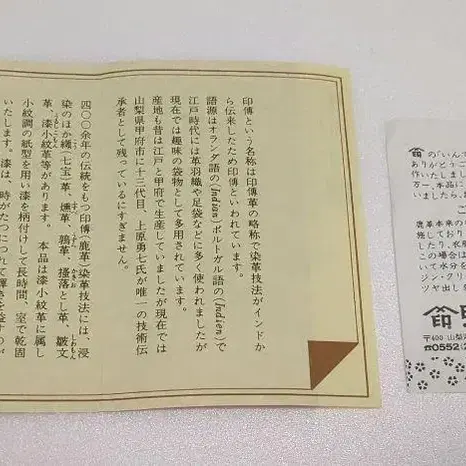 印傳という名称は印傳革の略称で染革技法がインドか
ら伝来したため印傳といわれています。
語源はオランダ語の(Indien)ポルトガル語の(Indien)で
江戸時代には革羽織や足袋などに多く使われましたが
現在では趣味の袋物として多用されています。
産地も昔は江戸と甲府で生産していましたが現在では
山梨県甲府市に十三代目、上原勇七氏が唯一の技術伝
承者として残っているにすぎません。
四〇〇余年の伝統をもつ印傳(鹿革)染革技法には、浸
染のほか縄(七宝)革、燻革、鶉革、掻落とし革、皺文
革、漆小紋革等があります。本品は漆小紋革に属し
小紋調の紙型を用い漆を柄付けして長時間、室で乾固
いたします。漆は、時がたつにつれて輝きを増すのが
の「いんで
ありがとうご
作いたしまし
万一、本品に
いましたら、
革本来の
施しており
したり、衣類
この場合は
いて水分を
ジン・クリー
ツヤ出し
印
〒400 山梨
☎0552